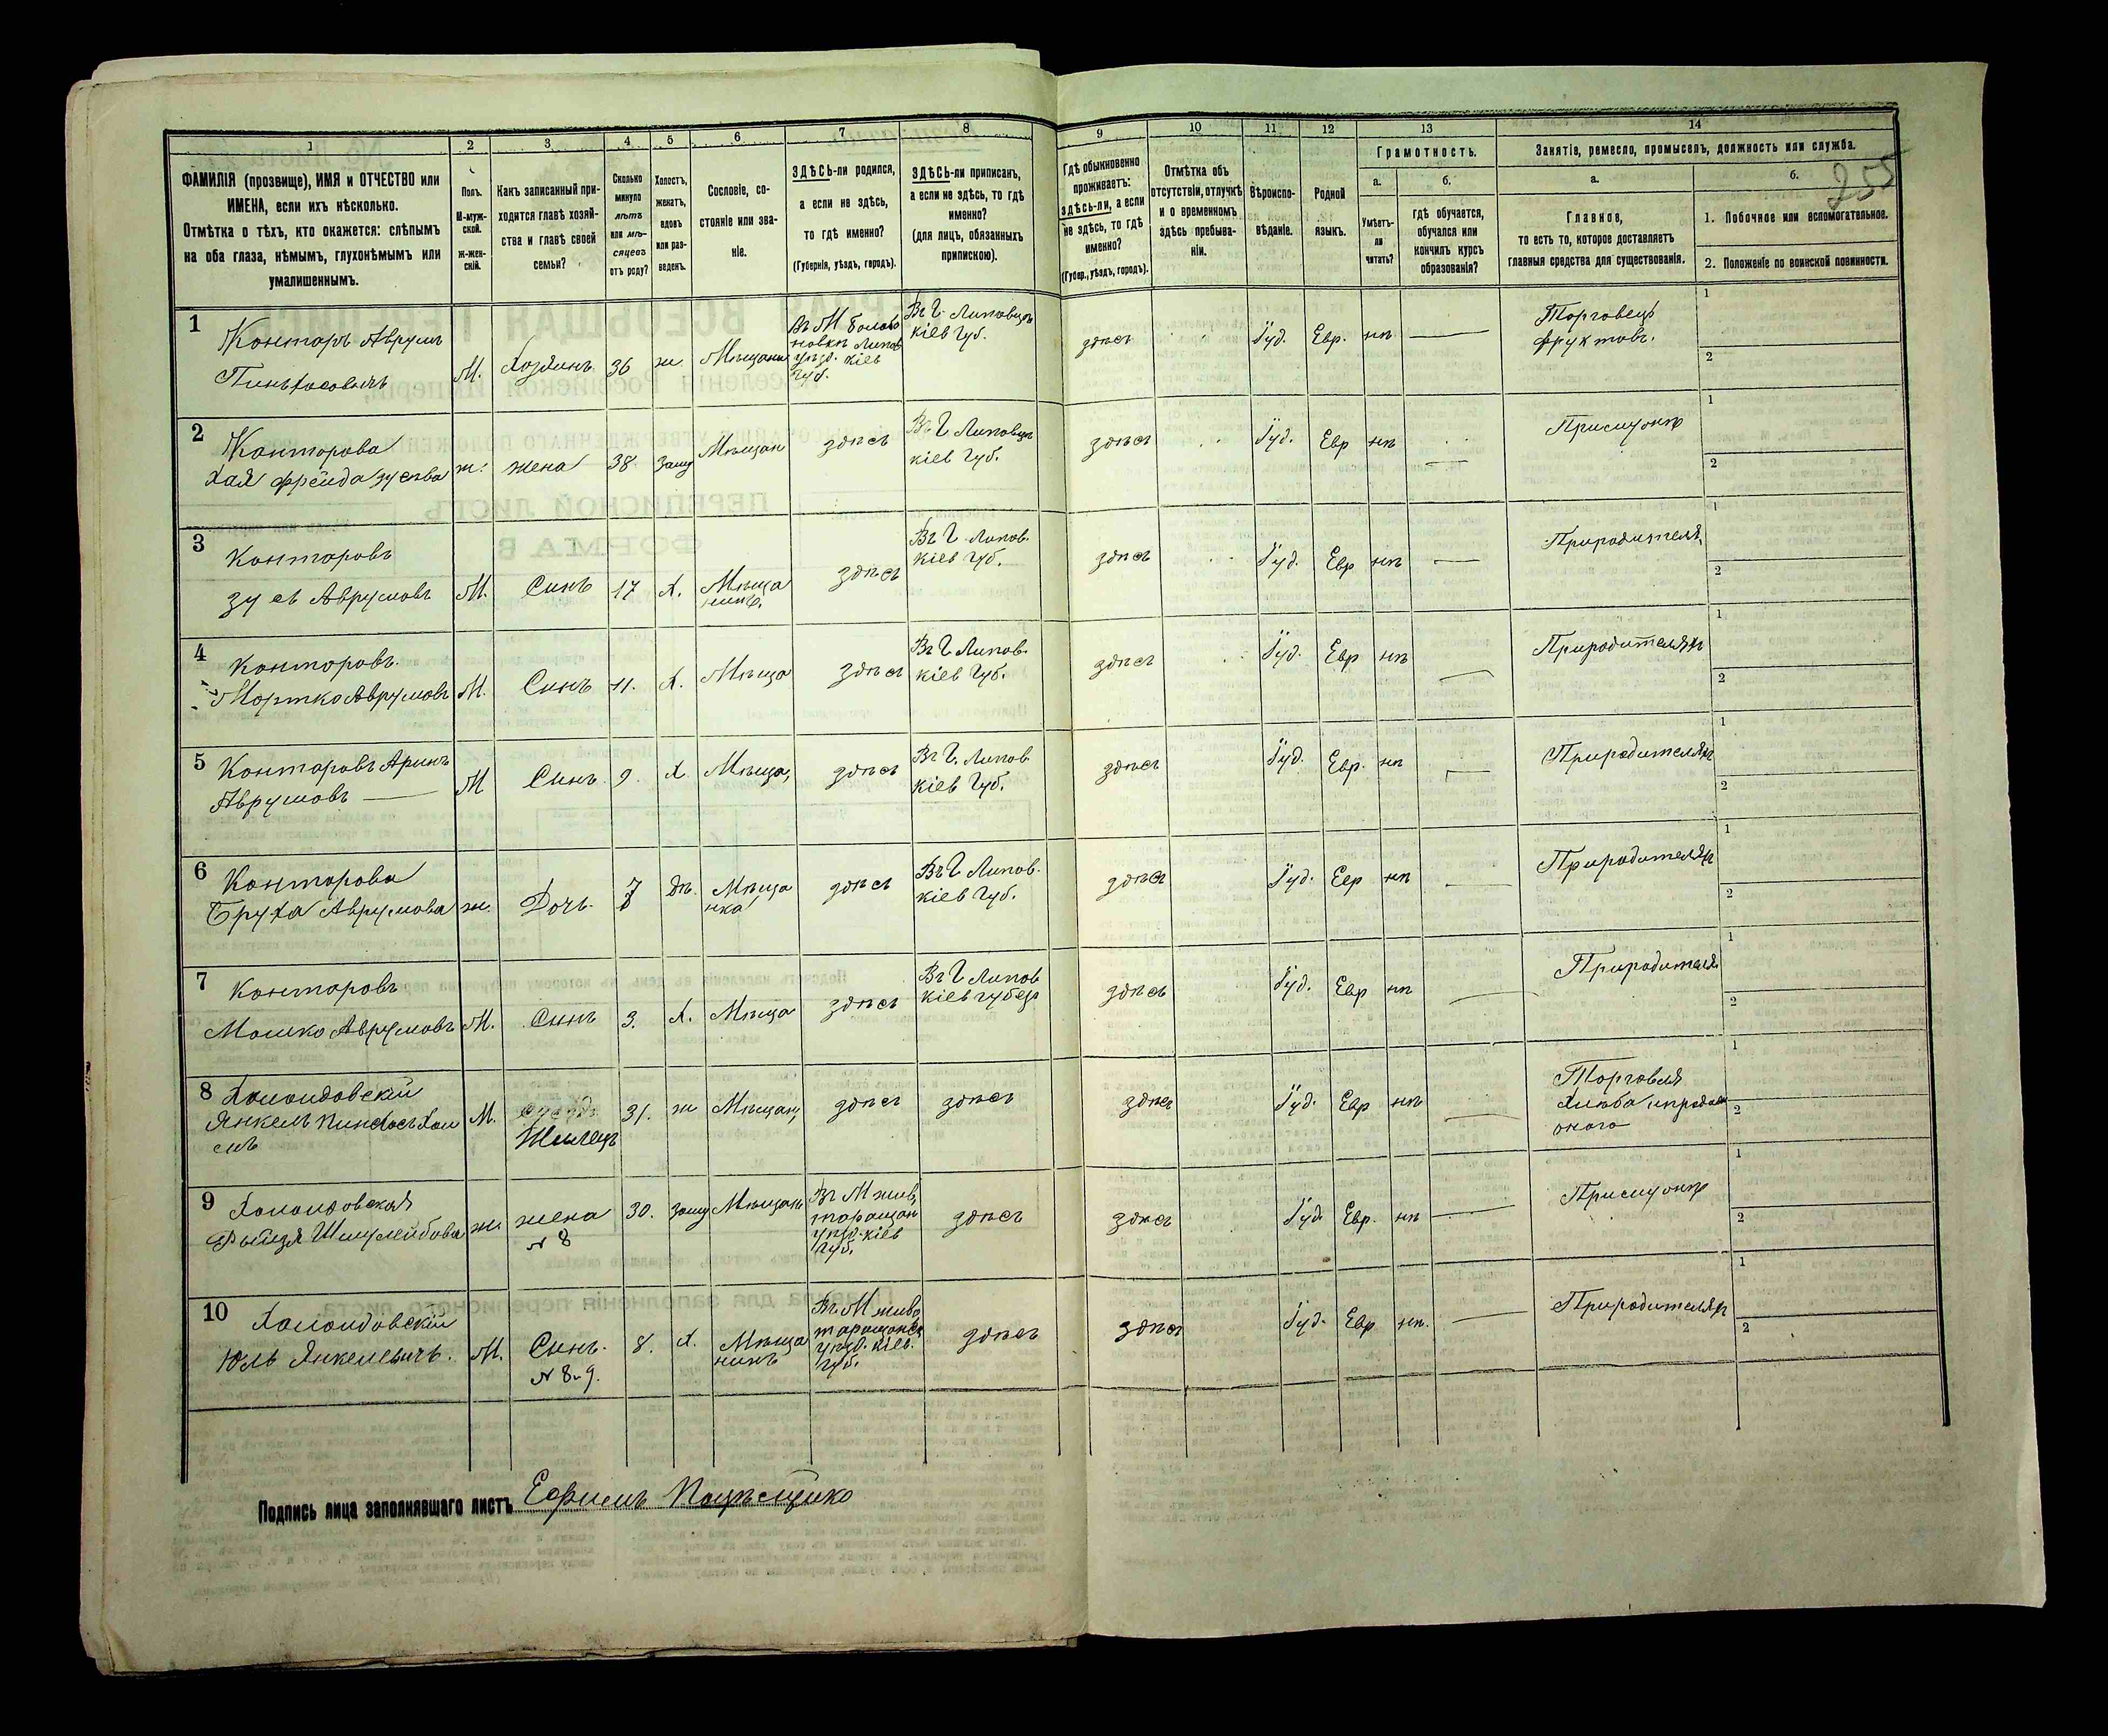 1 2 3 4 5 6 7 8 9 10 11 12 13 14
ФАМИЛІЯ (прозвище), ИМЯ и ОТЧЕСТВО или
ИМЕНА, если ихъ нѣсколько.
Отмѣтка о тѣхъ, кто окажется: слѣпымъ
на оба глаза, нѣмымъ, глухонѣмымъ или
умалишеннымъ.
Полъ.
М-муж-
ской.
Ж-жен-
скій.
Какъ записанный при-
ходится главѣ хозяй-
ства и главѣ своей
семьи?
Сколько
минуло
лѣтъ
или мѣ-
сяцевъ
отъ роду?
Холостъ,
женатъ,
вдовъ
или раз-
веденъ.
Сословіе, со-
стояніе или зва-
ніе.
ЗДѢСЬ-ли родился,
а если не здѣсь,
то гдѣ именно?
(Губернія, уѣздъ, городъ).
ЗДѢСЬ-ли приписанъ,
а если не здѣсь, то гдѣ
именно?
(для лицъ, обязанныхъ
припискою).
Гдѣ обыкновенно
проживаетъ:
здѣсь-ли, а если
не здѣсь, то гдѣ
именно?
(Губер., уѣздъ, городъ).
Отмѣтка объ
отсутствіи, отлучкѣ
и о временномъ
здѣсь пребыва-
ніи.
Вѣроиспо-
вѣданіе.
Родной
языкъ.
Грамотность.
а.
Умѣетъ-
ли
читать?
б.
гдѣ обучается,
обучался или
кончилъ курсъ
образованія?
Занятія, ремесло, промыселъ, должность или служба.
а.
Главное,
то есть то, которое доставляетъ
главныя средства для существованія.
б.
255
1. Побочное или вспомогательное.
2. Положеніе по воинской повинности.
1 Конторъ Аврумъ
Пинъхасовичъ
М. Хозяинъ 36 ж Мѣщани
уѣзд. кіев
губ.
Въ Г. Липовцѣ
кіев губ.
здѣсь Іуд. Евр. нѣ —
Торговецъ
фруктовъ.
1
2
2 Конторова
Хая Фрейда Зусева
ж. жена 38. Заму Мѣщан здѣсь
Въ Г Липовцѣ
кіев губ.
здѣсь Іуд. Евр нѣ — Примужѣ
1
2
3 Конторовъ
Зусь Аврумовъ
М. Синъ 17 Х. Мѣща
нинъ.
здѣсь
Въ Г Липов.
кіев губ.
здѣсь Іуд. Евр нѣ — Природителя
1
2
4 Конторовъ.
Мортко Аврумовъ
М. Синъ 11. Х. Мѣща здѣсь
Въ Г Липов.
кіев губ.
здѣсь Іуд. Евр нѣ — Природителяхъ
1
2
5 Конторовъ Аринъ
Аврумовъ —
М Синъ. 9. Х Мѣща, здѣсь
Въ Г. Липов
кіев губ.
здѣсь Іуд. Евр. нѣ — Природителяхъ
1
2
6 Конторова
Бруха Аврумова
ж. Дочь. 7 дѣ. Мѣща
нка
здѣсь
Въ Г Липов.
кіев губ.
здѣсь Іуд. Евр нѣ — Природителяхъ
1
2
7 Конторовъ
Мошко Аврумовъ
М. Синъ 3. Х. Мѣща здѣсь
Въ Г Липов
кіев губер
здѣсь Іуд. Евр нѣ — Природителя
1
2
8
Янкель Пинхосъ
М. Жилецъ 31. ж Мѣщан, здѣсь здѣсь
здѣсь Іуд. Евр нѣ —
Торговля
хлѣба
оного
1
2
9
ж. жена
№ 8
30. Заму Мѣщань
Въ М жив,
таращан
уѣзд. кіев
губ.
здѣсь здѣсь Іуд. Евр. нѣ — Примужѣ
1
2
10
Юль Янкелевичъ.
М. Синъ.
№ 8 и 9.
8. Х. Мѣща
нинъ
Въ М живо
таращанск
уѣзд. кіев.
губ.
здѣсь здѣсь Іуд. Евр нѣ. — Природителяхъ
1
2
Подпись лица заполнявшаго листъ Ефимъ